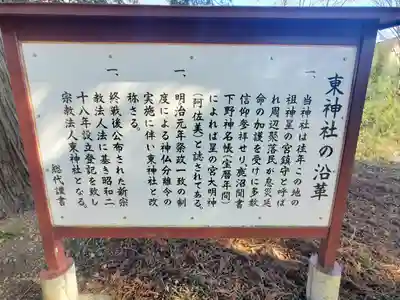 東神社の沿革
一、当神社は往年この地の
祖神星の宮鎮守と呼ば
れ周辺聚落民が息災延
命の加護を受けに多数
信仰参拝せり、鹿沼聞書
下野神名帳(宝暦年間)
によれば星の宮大明神
(阿佐美)と誌されてある。
一、明治元年祭政一致の制
度による神仏分離令の
実施に伴い東神社と改
称さる。
一、終戦後公布された新宗
教法人法に基き昭和二
十八年設立登記を致し
宗教法人東神社となる。
総代謹書